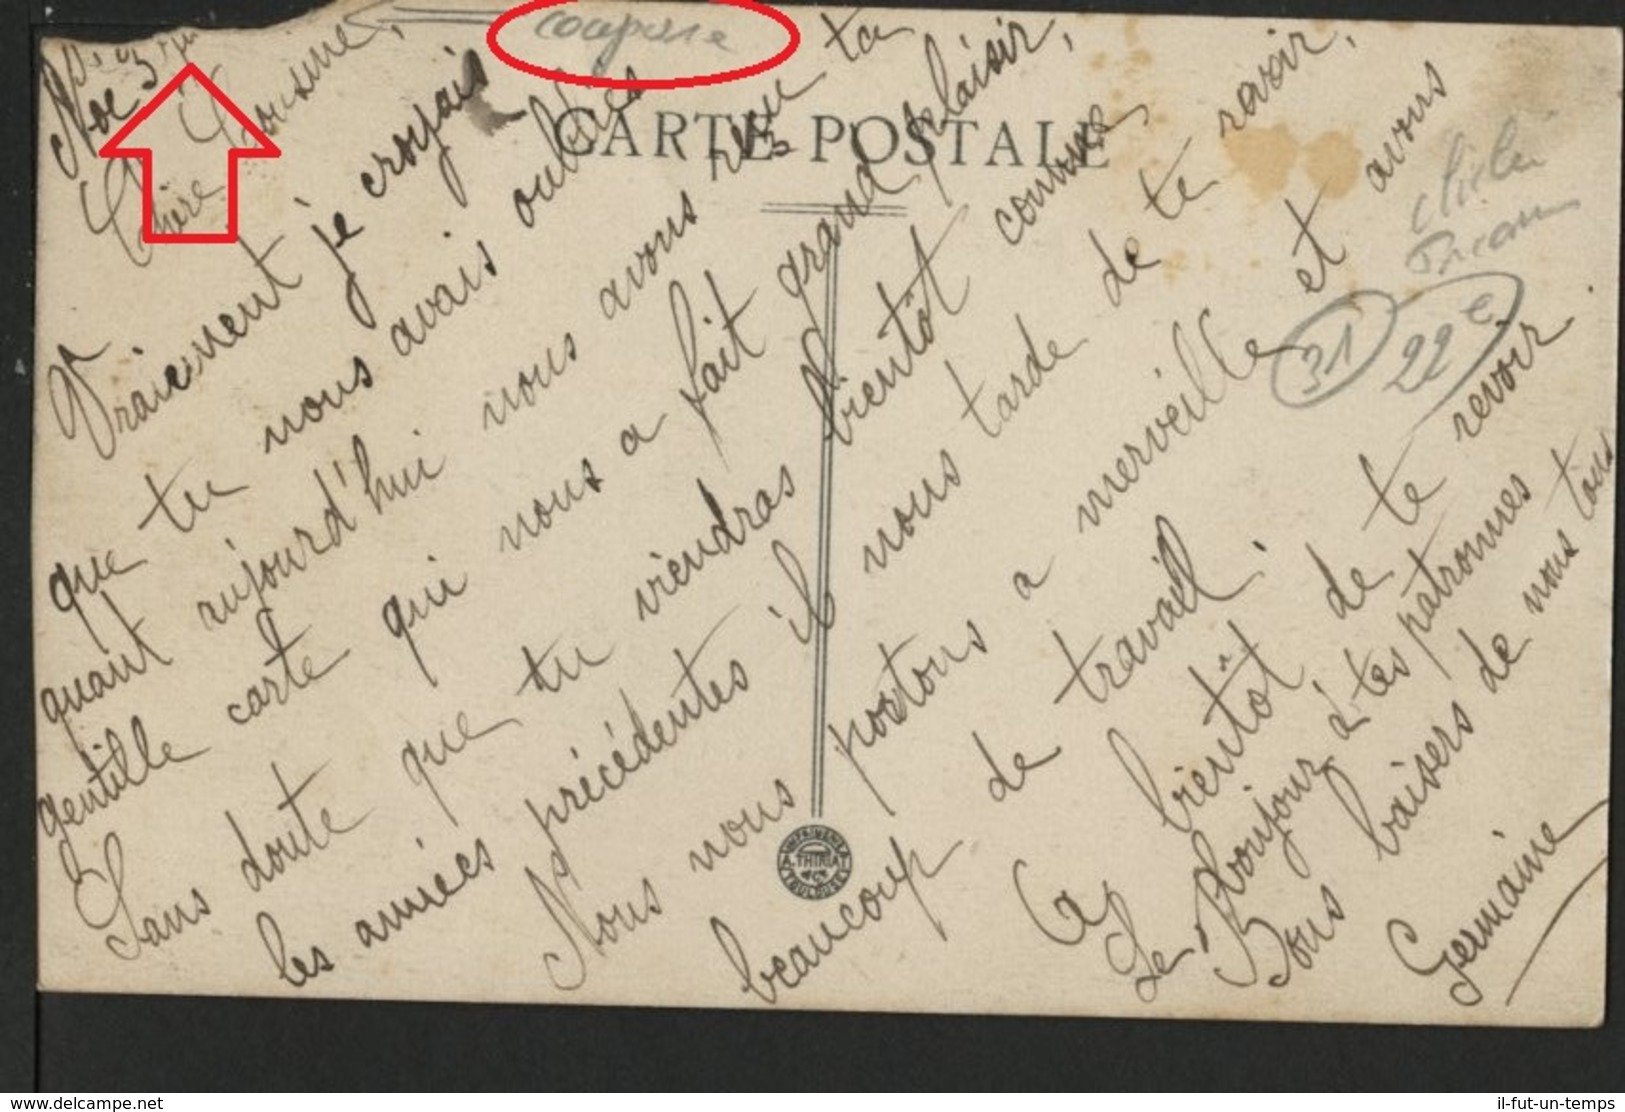 Noé 3
Chère Cousine,
coupure
CARTE POSTALE
Vraiement je croyais
que tu nous avais oubliés
quant aujourd'hui nous avons reçu ta
gentille carte qui nous a fait grand plaisir,
Sans doute que tu viendras bientôt comme
les années précédentes il nous tarde de te ravoir,
Nous nous portons a merveille et avons
beaucoup de travail.
A bientôt de te revoir.
Le bonjour à tes patronnes
Bons baisers de nous tous
Germaine
cliché
31
22e
IMPRIMERIE
A. THIRIAT
TOULOUSE
www.delcampe.net
il-fut-un-temps